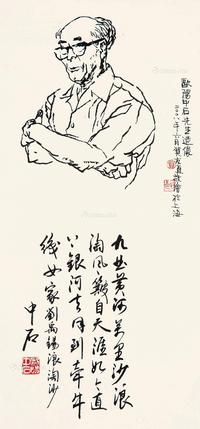 歐陽中石先生造像
二〇〇八年六月賀友直敬繪於上海
九曲黄河萬里沙浪
淘風簸自天涯如今直
上銀河去同到牽牛
織女家劉禹錫浪淘沙
中石